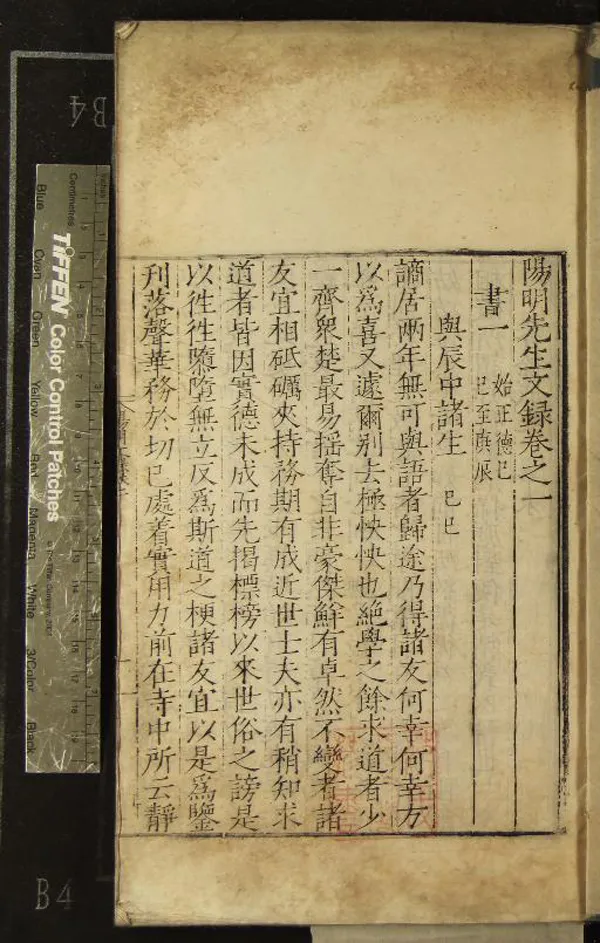 陽明先生文録卷之一
書一 始正德己
巳至庚辰
與辰中諸生 己巳
謫居兩年無可與語者歸途乃得諸友何幸何幸方
以爲喜又遽爾别去極怏怏也絶學之餘求道者少
一齊衆楚最易揺奪自非豪傑鮮有卓然不變者諸
友宜相砥礪夾持務期有成近世士夫亦有稍知求
道者皆因實德未成而先揭標榜以來世俗之謗是
以徃徃隳墮無立反爲斯道之梗諸友宜以是爲鑒
刋落聲華務於切己處着實用力前在寺中所云靜
B4
B4
Centimetres
Inches
TIFFEN Color Control Patches
© The Tiffen Company, 2007
Blue
Cyan
Green
Yellow
Red
Magenta
White
3/Color
Black